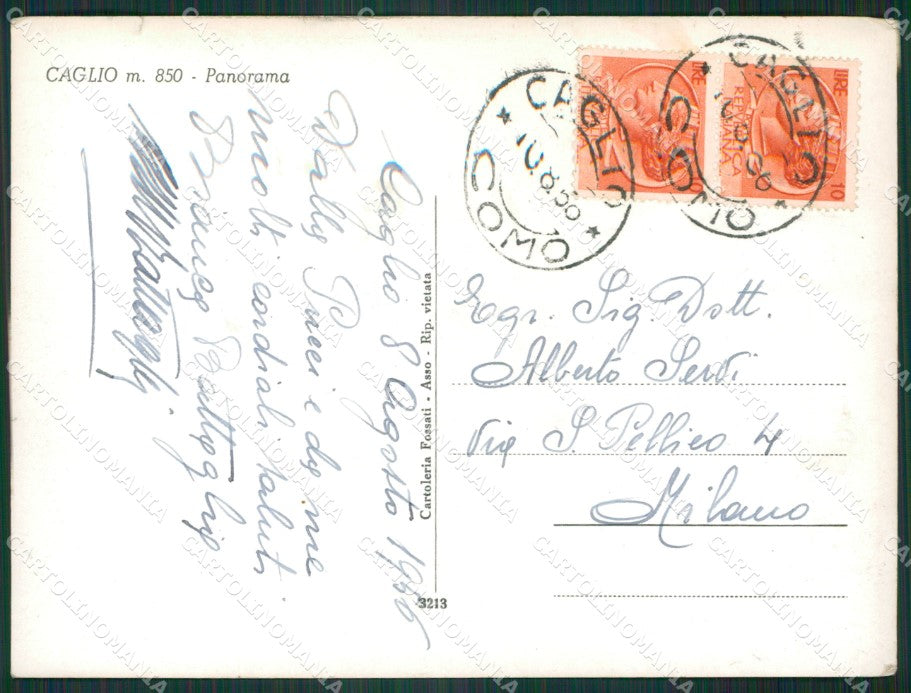 CAGLIO m. 850 - Panorama
Caglio 8 Agosto 1956
Dalla Pucci e da me
molti cordiali saluti
Franco Battaglia
Cartoleria Fossati - Asso - Rip. vietata
3213
CAGLIO
10.8.56
COMO
CAGLIO
10.8.56
COMO
LIRE
10
REPVBBLICA
ITALIANA
LIRE
10
Egr. Sig. Dott.
Alberto Servi
Via S. Pellico 4
Milano
CARTOLINOMANIA